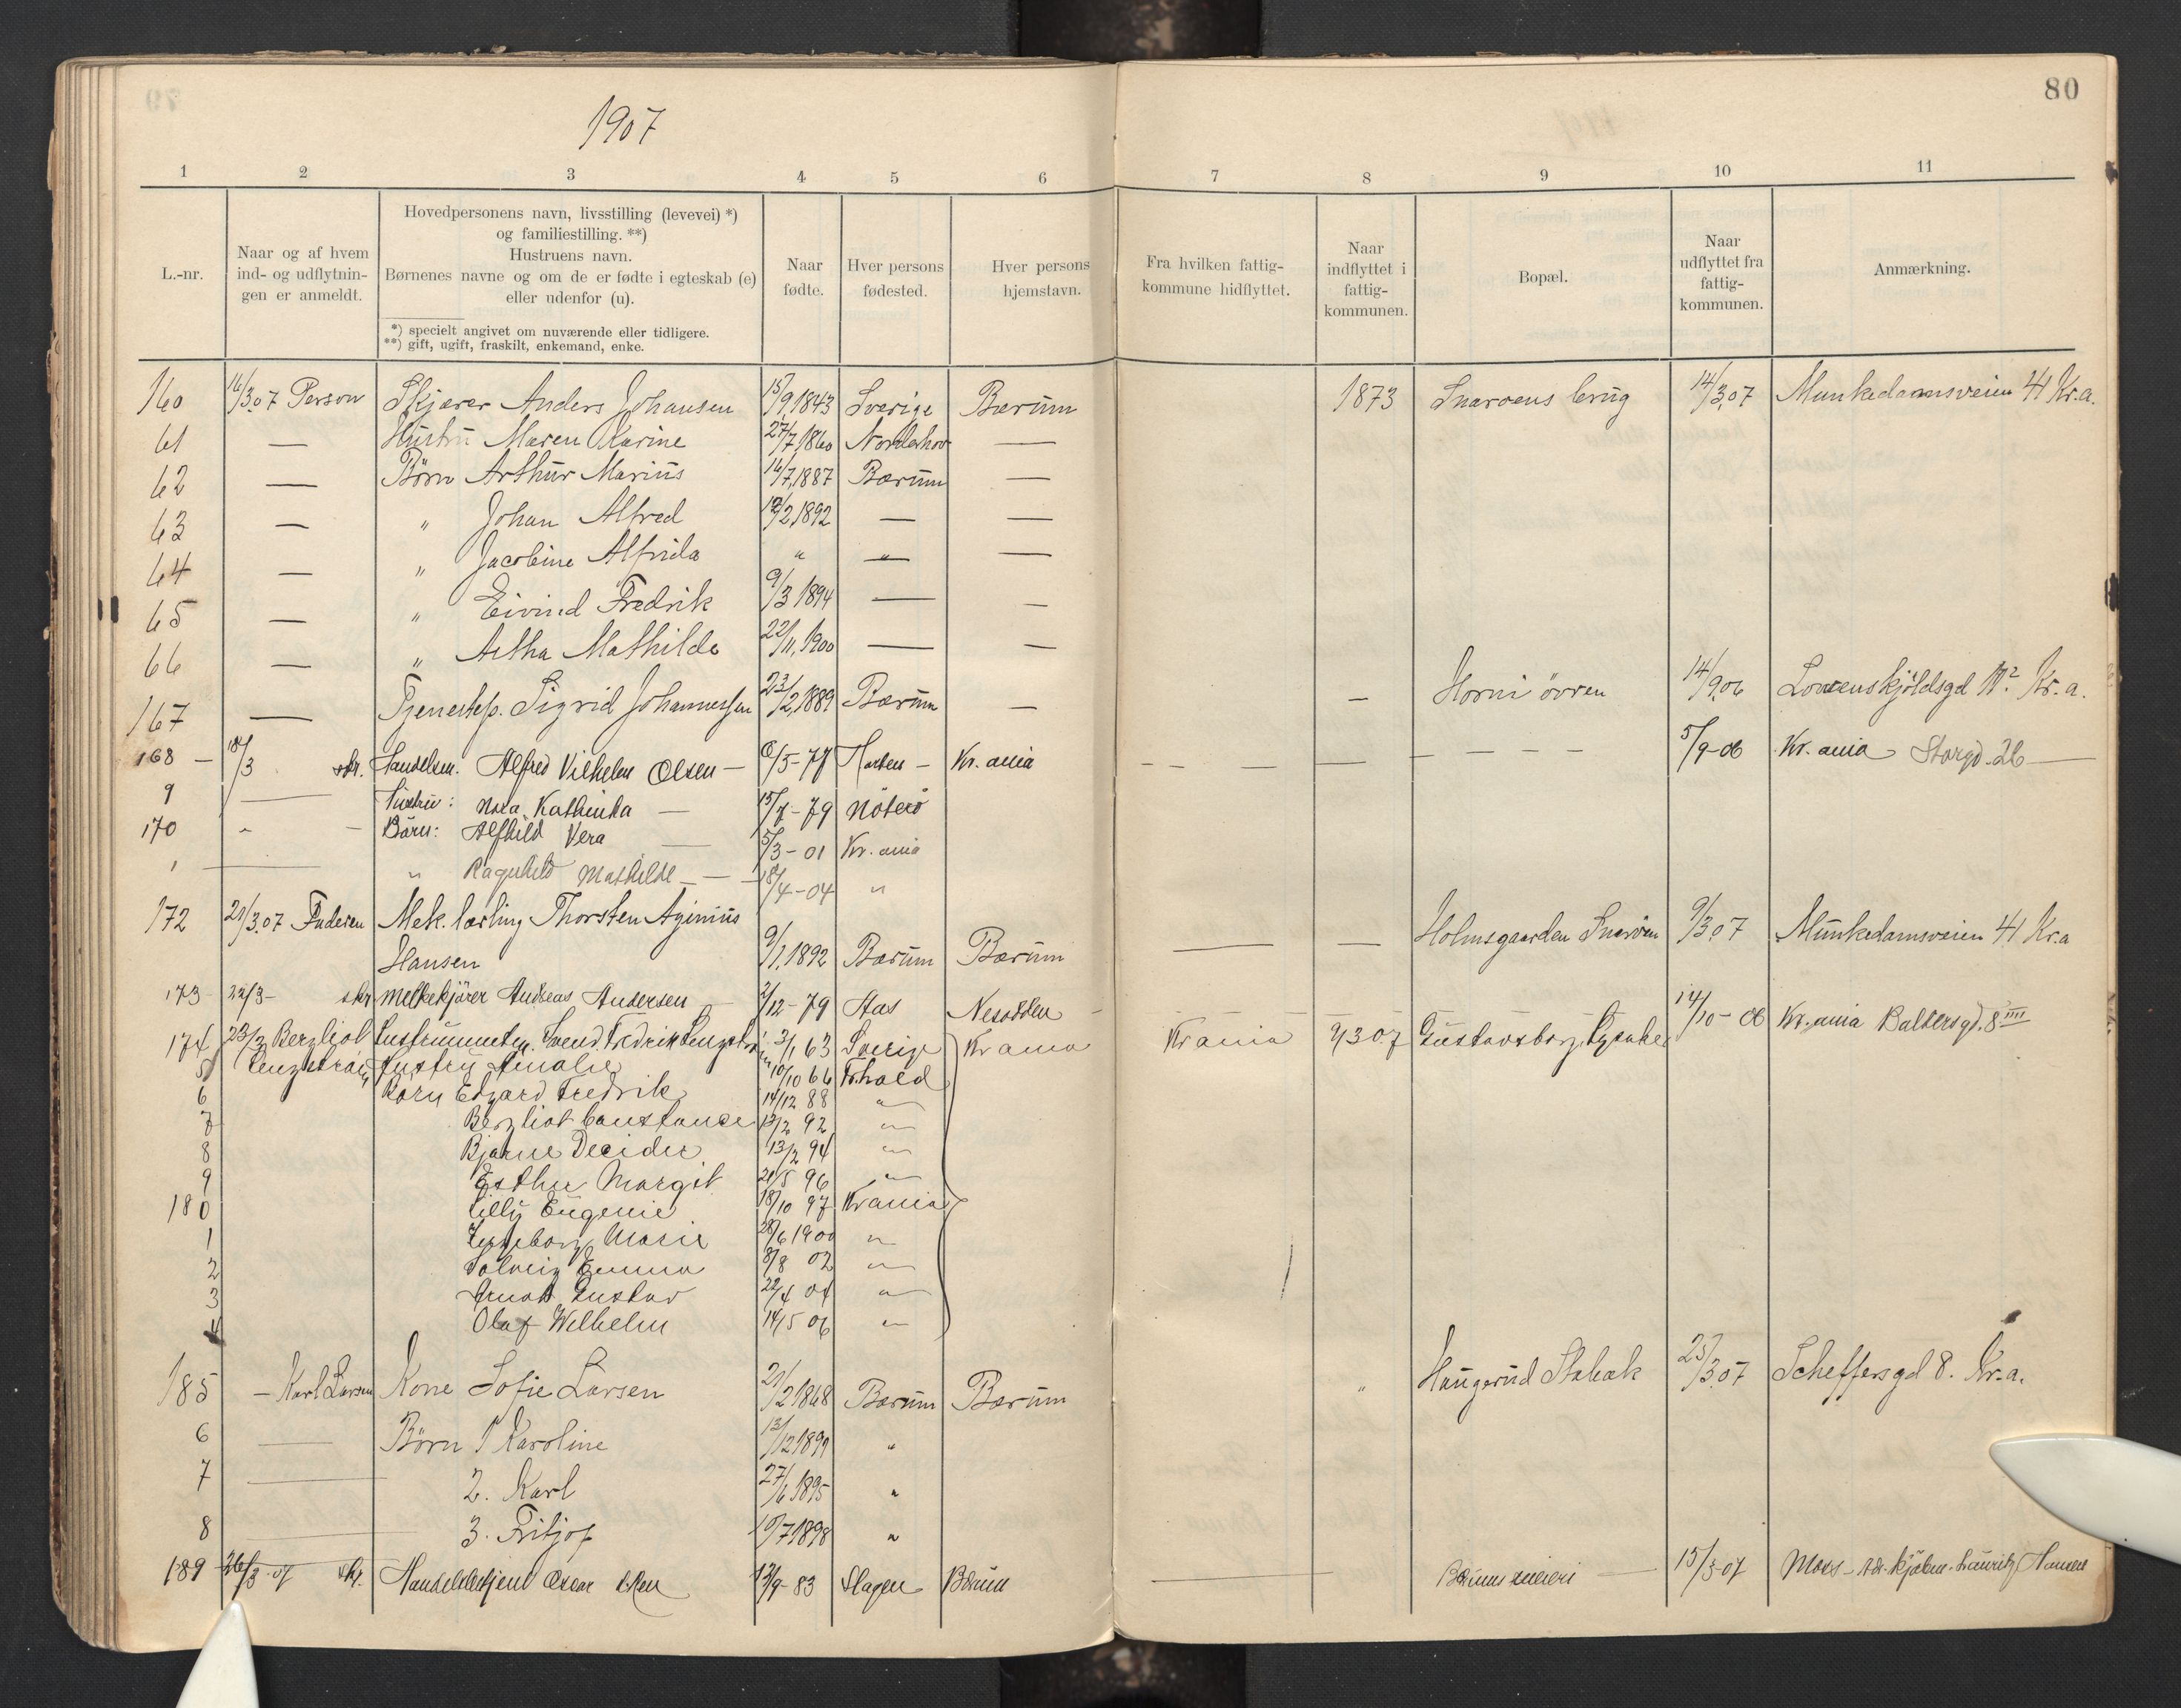 80
1907
1 2 3 4 5 6 7 8 9 10 11
L.-nr.
Naar og af hvem
ind- og udflytnin-
gen er anmeldt.
Hovedpersonens navn, livsstilling (levevei) *)
og familiestilling. **)
Hustruens navn.
Børnenes navne og om de er fødte i egteskab (e)
eller udenfor (u).
*) specielt angivet om nuværende eller tidligere.
**) gift, ugift, fraskilt, enkemand, enke.
Naar
fødte.
Hver persons
fødested.
Hver persons
hjemstavn.
Fra hvilken fattig-
kommune hidflyttet.
Naar
indflyttet i
fattig-
kommunen.
Bopæl.
Naar
udflyttet fra
fattig-
kommunen.
Anmærkning.
160 16/3.07 Person Skjærer Anders Johansen 15/9,1843 Sverige Bærum 1873 Snarøens brug 14/3.07 Munkedamsveien 41 Kr.a.
61 — Hustru Maren Karine 27/7,1860 Norderhov —
62 — Børn Arthur Marius 16/7,1887 Bærum —
63 — " Johan Alfred 12/2,1892 — —
64 — " Jacobine Alfrida " — —
65 — " Eivind Fredrik 9/3 1894 — —
66 — " Astha Mathilde 22/11,1900 — —
167 — Tjenestep. Sigrid Johannessen 23/2,1889 Bærum — — Horni øvren 14/9.06 Lovenskjoldsgd Kr.a.
168 — 18/3 skr. Handelsm. Alfred Vilhelm Olsen — 6/5-77 Horten — Kr.ania — — — 5/9-06 Kr.ania Storgd. 26 —
9 — Hustru: Nora Kathinka — 15/7-79 Nøterø
170 " — Børn: Alfhild Vera — 5/3-01 Kr.ania
1 — " Ragnhild Mathilde — — 18/4-04 "
172 21/3.07 Faderen Mek. lærling Thorsten Aginius
Hansen 9/1,1892 Bærum Bærum — — Holmsgaarden Snarøen 9/3.07 Munkedamsveien 41 Kr.a
173 22/3- skr Melkekjører Andreas Andersen — 2/12-79 Aas Nesodden — 14/10-06 Kr.ania Baldersgd. 8 IIII
174 23/3 Bergliot Instrumentm. Svend Fredrik Lengstrøm 3/1 63 Sverige Krania Krania 9 3 07 Gustavsborg, Lysaker
5 Lengstrøm Hustru Amalie 10/10 66 Fr.hald
6 Børn Edvard Fredrik 14/12 88 "
7 Bergliot Constance 13/2 92 "
8 Bjarne Decider 13/2 94 "
9 Esther Margit 21/5 96 "
180 Lilly Eugenie 18/10 97 Krania
1 Ingeborg Marie 28/6 1900 "
2 Solveig Emma 8/8 02 "
3 Arnold Gustav 22/4 04 "
4 Olaf Wilhelm 14/5 06 "
185 — Karl Larsen Kone Sofie Larsen 21/2 1868 Bærum Bærum " Haugerud Stabæk 25/3.07 Scheffersgd 8. Kr.a.
6 — Børn 1 Karoline 13/12 1899 "
7 — 2. Karl 27/6 1895 "
8 — 3. Fritjof 10/7 1898 "
189 26/3-07 skr. Handelsbetjent Oscar 13/9-83 Slagen Bærum — Bærums meieri — 15/3-07 Moss — Adr. kjøbm. Lauritz Hansen